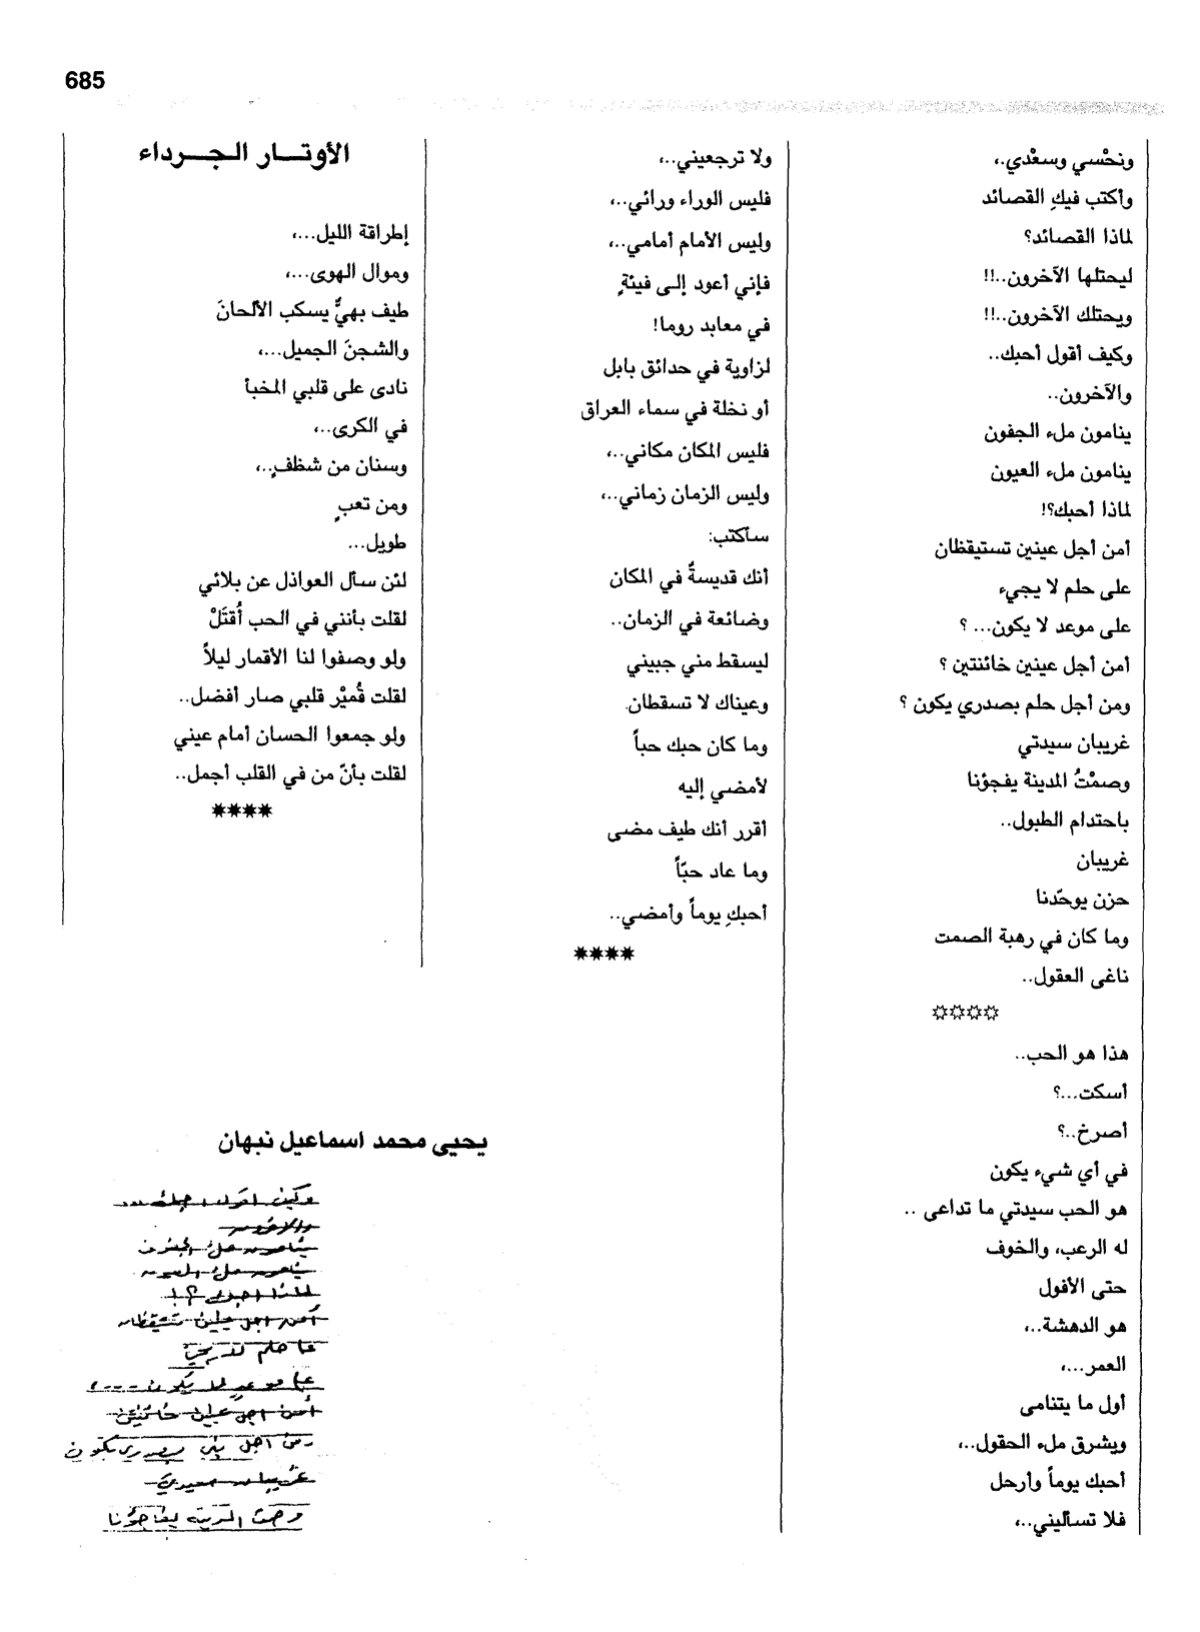 685
ونحْسي وسعْدي.،
وأكتب فيكِ القصائد
لماذا القصائد؟
ليحتلها الآخرون..!!
ويحتلك الآخرون..!!
وكيف أقول أحبك..
والآخرون..
ينامون ملء الجفون
ينامون ملء العيون
لماذا أحبك؟!
أمن أجل عينين تستيقظان
على حلم لا يجيء
على موعد لا يكون... ؟
أمن أجل عينين خائنتين ؟
ومن أجل حلم بصدري يكون ؟
غريبان سيدتي
وصمْتُ المدينة يفجؤنا
باحتدام الطبول..
غريبان
حزن يوحّدنا
وما كان في رهبة الصمت
ناغى العقول..
☼☼☼☼
هذا هو الحب..
أسكت...؟
أصرخ..؟
في أي شيء يكون
هو الحب سيدتي ما تداعى ..
له الرعب، والخوف
حتى الأفول
هو الدهشة..،
العمر...،
أول ما يتنامى
ويشرق ملء الحقول..،
أحبك يوماً وأرحل
فلا تسأليني..،
ولا ترجعيني..،
فليس الوراء ورائي..،
وليس الأمام أمامي..،
فإني أعود إلى فيئةٍ
في معابد روما!
لزاوية في حدائق بابل
أو نخلة في سماء العراق
فليس المكان مكاني..،
وليس الزمان زماني..،
سأكتب:
أنك قديسةٌ في المكان
وضائعة في الزمان..
ليسقط مني جبيني
وعيناك لا تسقطان.
وما كان حبك حباً
لأمضي إليه
أقرر أنك طيف مضى
وما عاد حبّاً
أحبكِ يوماً وأمضي..
✷✷✷✷
الأوتــار الـجــرداء
إطراقة الليل...،
وموال الهوى...،
طيف بهيٌّ يسكب الألحانَ
والشجنَ الجميل...،
نادى على قلبي المخبأ
في الكرى..،
وسنان من شظفٍ..،
ومن تعبٍ
طويل...
لئن سأل العواذل عن بلائي
لقلت بأنني في الحب أُقتَلْ
ولو وصفوا لنا الأقمار ليلاً
لقلت قُميْر قلبي صار أفضل..
ولو جمعوا الحسان أمام عيني
لقلت بأنّ من في القلب أجمل..
✷✷✷✷
يحيى محمد اسماعيل نبهان
وكيف اقول احبك ...
والآخرون
ينامون ملء الجفون
ينامون ملء العيون
لماذا احبك ؟!
أمن اجل عينين تستيقظان
على حلم لا يجيء
على موعدٍ لا يكون ....،
أمن اجل عينين خائنتين
ومن اجل بصدري يكون
غريبان سيدتي
وصمت المدينة يفاجؤنا